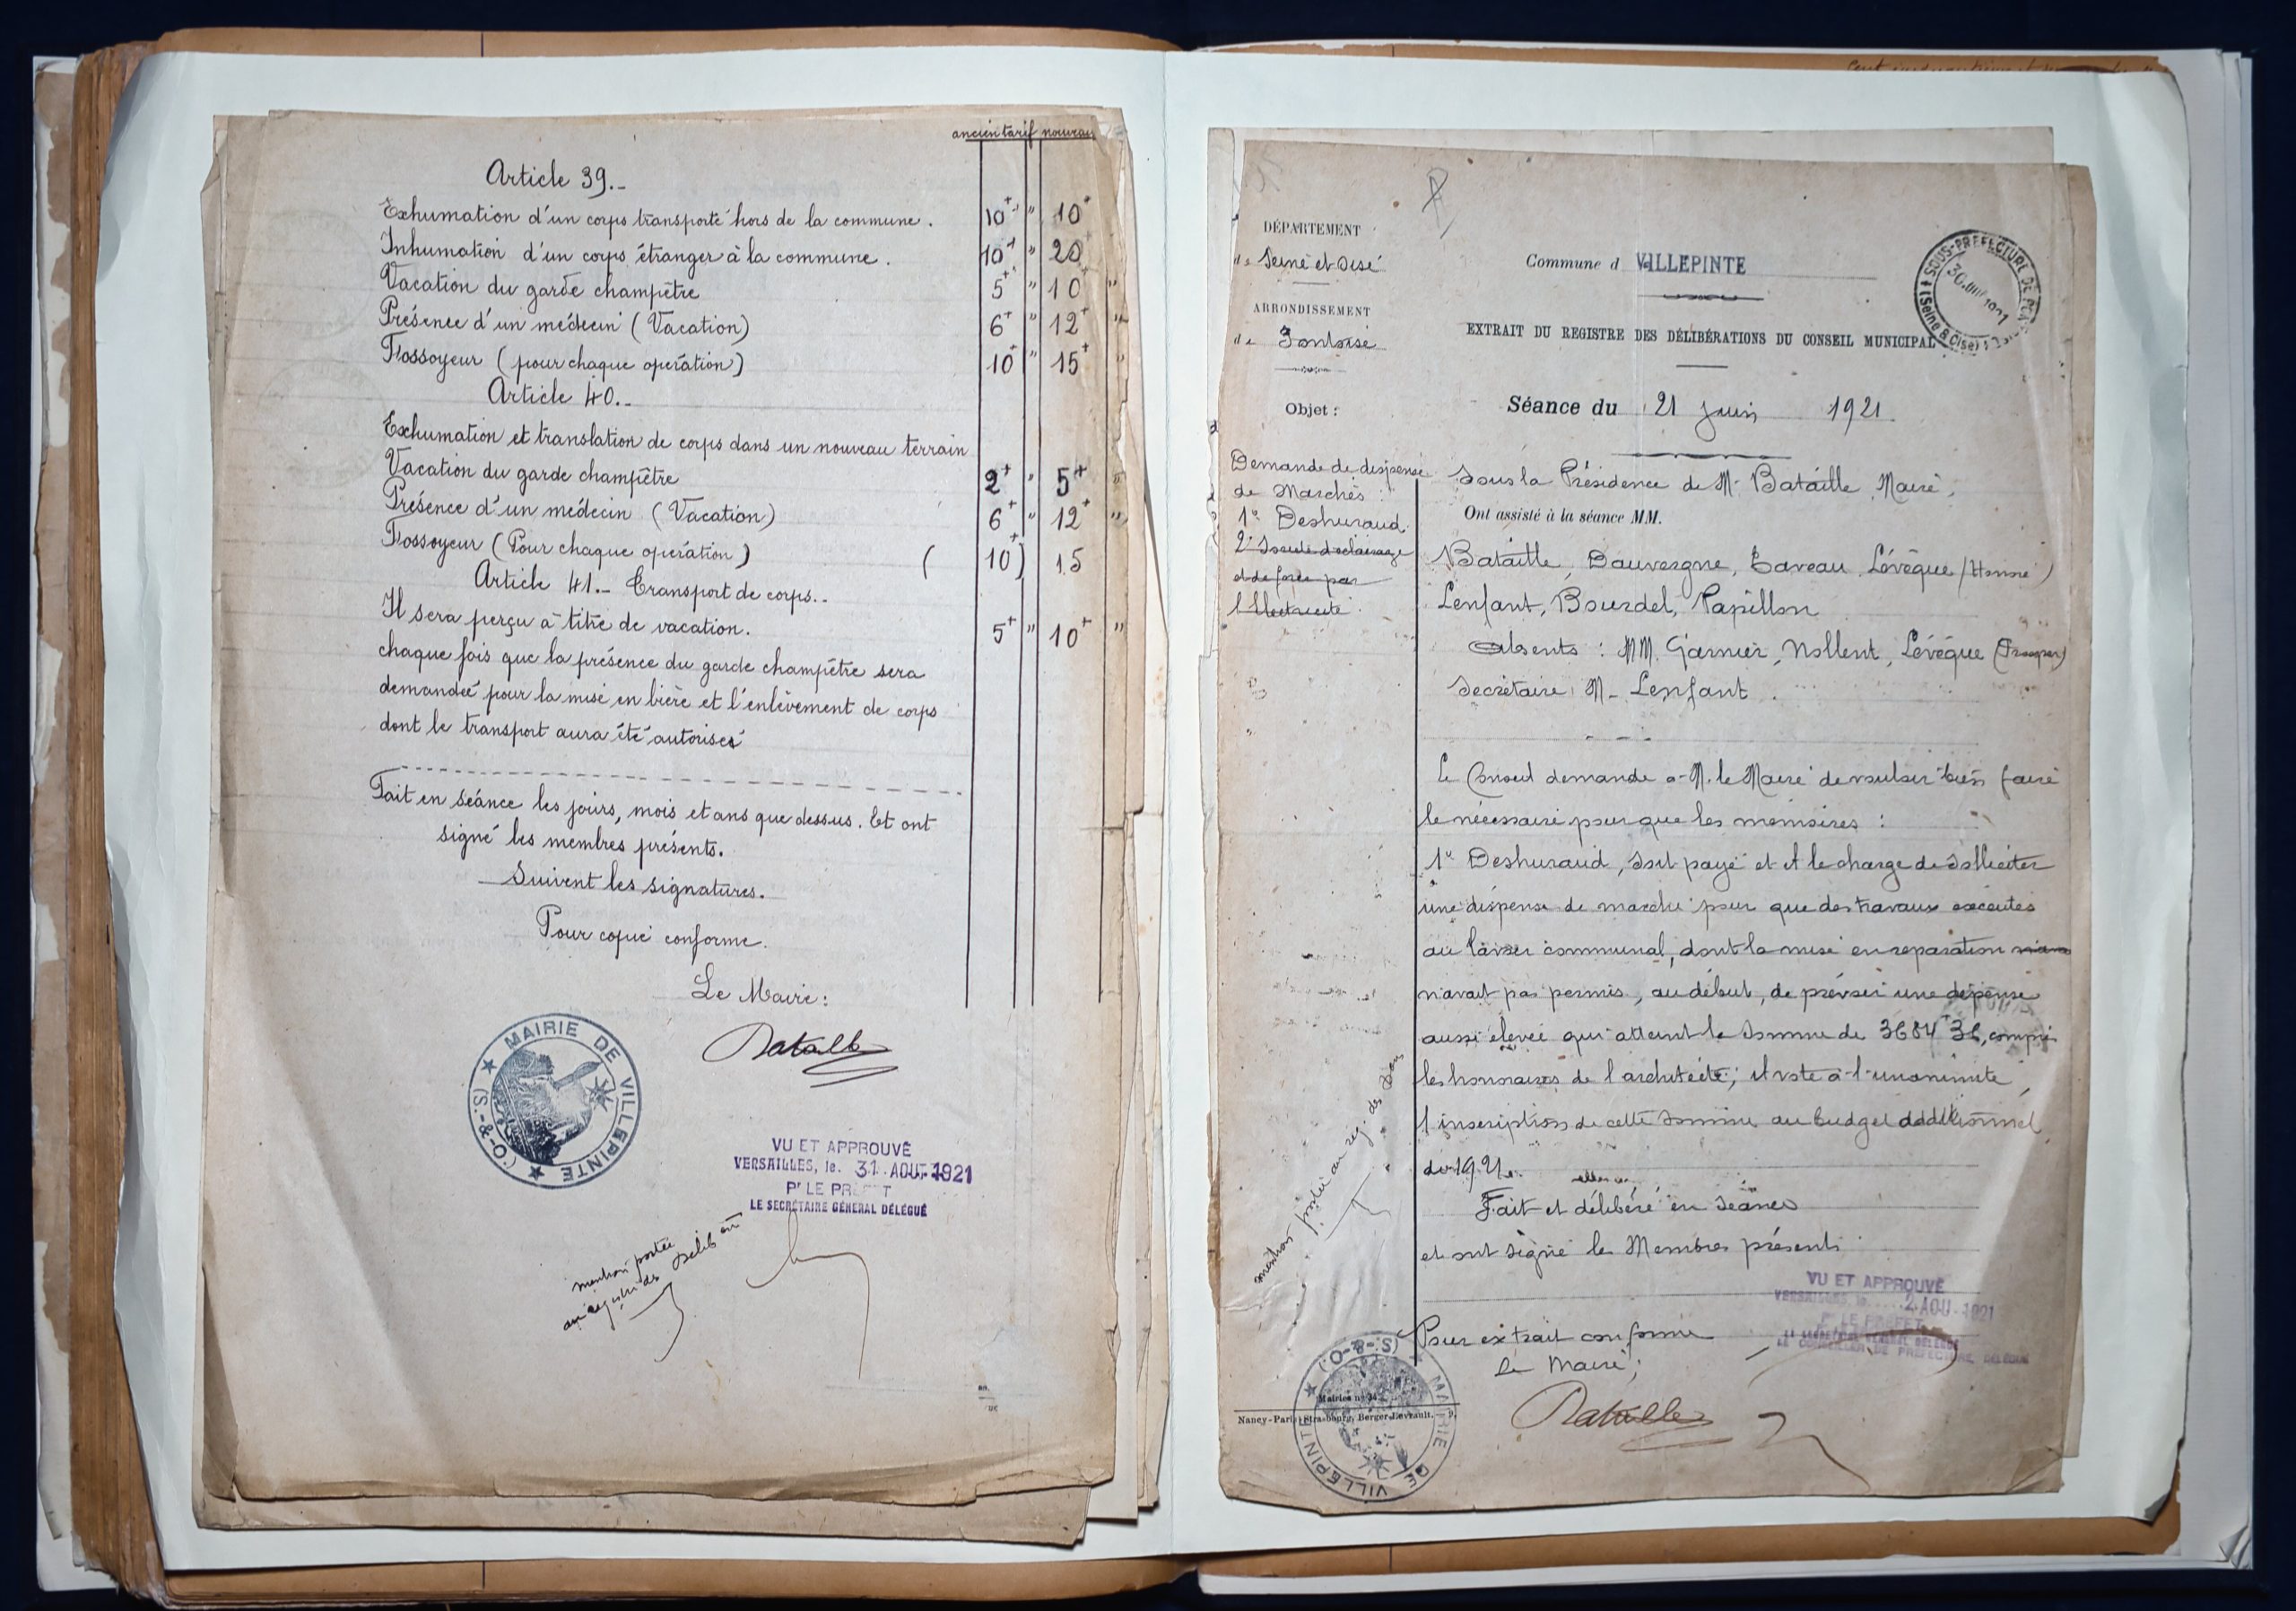 ancien tarif nouveau
Article 39.-
Exhumation d'un corps transporté hors de la commune. 10 " 10
Inhumation d'un corps étranger à la commune. 10 " 20
Vacation du garde champêtre 5 " 10 "
Présence d'un médecin (Vacation) 6 " 12 "
Fossoyeur (pour chaque opération) 10 " 15 "
Article 40.-
Exhumation et translation de corps dans un nouveau terrain
Vacation du garde champêtre 2 " 5 "
Présence d'un médecin (Vacation) 6 " 12 "
Fossoyeur (Pour chaque opération) (10) 15
Article 41.- Transport de corps.-
Il sera perçu à titre de vacation. 5 " 10 "
chaque fois que la présence du garde champêtre sera
demandée pour la mise en bière et l'enlèvement de corps
dont le transport aura été autorisé
Fait en séance les jours, mois et ans que dessus. Et ont
signé les membres présents.
Suivent les signatures.
Pour copie conforme.
Le Maire:
Bataille
MAIRIE DE VILLEPINTE (S.-&-O.)
VU ET APPROUVÉ
VERSAILLES, le 31 AOUT 1921
Pr LE PRÉFET
LE SECRÉTAIRE GÉNÉRAL DÉLÉGUÉ
mention portée
au registre des Délib on
DÉPARTEMENT
de Seine et Oise
ARRONDISSEMENT
de Pontoise
Objet :
Demande de dispense
de Marchés :
1° Deshuraud
2° Société d'éclairage
et de force par
l'Electricité.
mention portée au reg. des
Commune d VILLEPINTE
SOUS-PREFECTURE DE
(Seine & Oise)
EXTRAIT DU REGISTRE DES DÉLIBÉRATIONS DU CONSEIL MUNICIPAL
Séance du 21 juin 1921
Sous la Présidence de M. Bataille, Maire,
Ont assisté à la séance MM.
Bataille, Dauvergne, Taveau, Lévêque (Honoré)
Lenfant, Bourdel, Papillon
Absents : MM. Garnier, Nollent, Lévêque (Prosper)
Secrétaire M- Lenfant.
Le Conseil demande à M. le Maire de vouloir bien faire
le nécessaire pour que les mémoires :
1° Deshuraud, soit payé et le charge de solliciter
une dispense de marché pour que des travaux exécutés
au lavoir communal, dont la mise en réparation
n'avait pas permis, au début, de prévoir une dépense
aussi élevée qui atteint la somme de 3684 36, compris
les honoraires de l'architecte; et vote à l'unanimité,
l'inscription de cette somme au budget additionnel
de 1921.
Fait et délibéré en séance
et ont signé les Membres présents
VU ET APPROUVÉ
VERSAILLES, le 2 AOU 1921
Pr LE PRÉFET
LE CONSEILLER DE PRÉFECTURE DÉLÉGUÉ
Pour extrait conforme
Le Maire;
Bataille
MAIRIE DE VILLEPINTE (S.-&-O.)
Nancy-Paris-Strasbourg, Berger-Levrault.